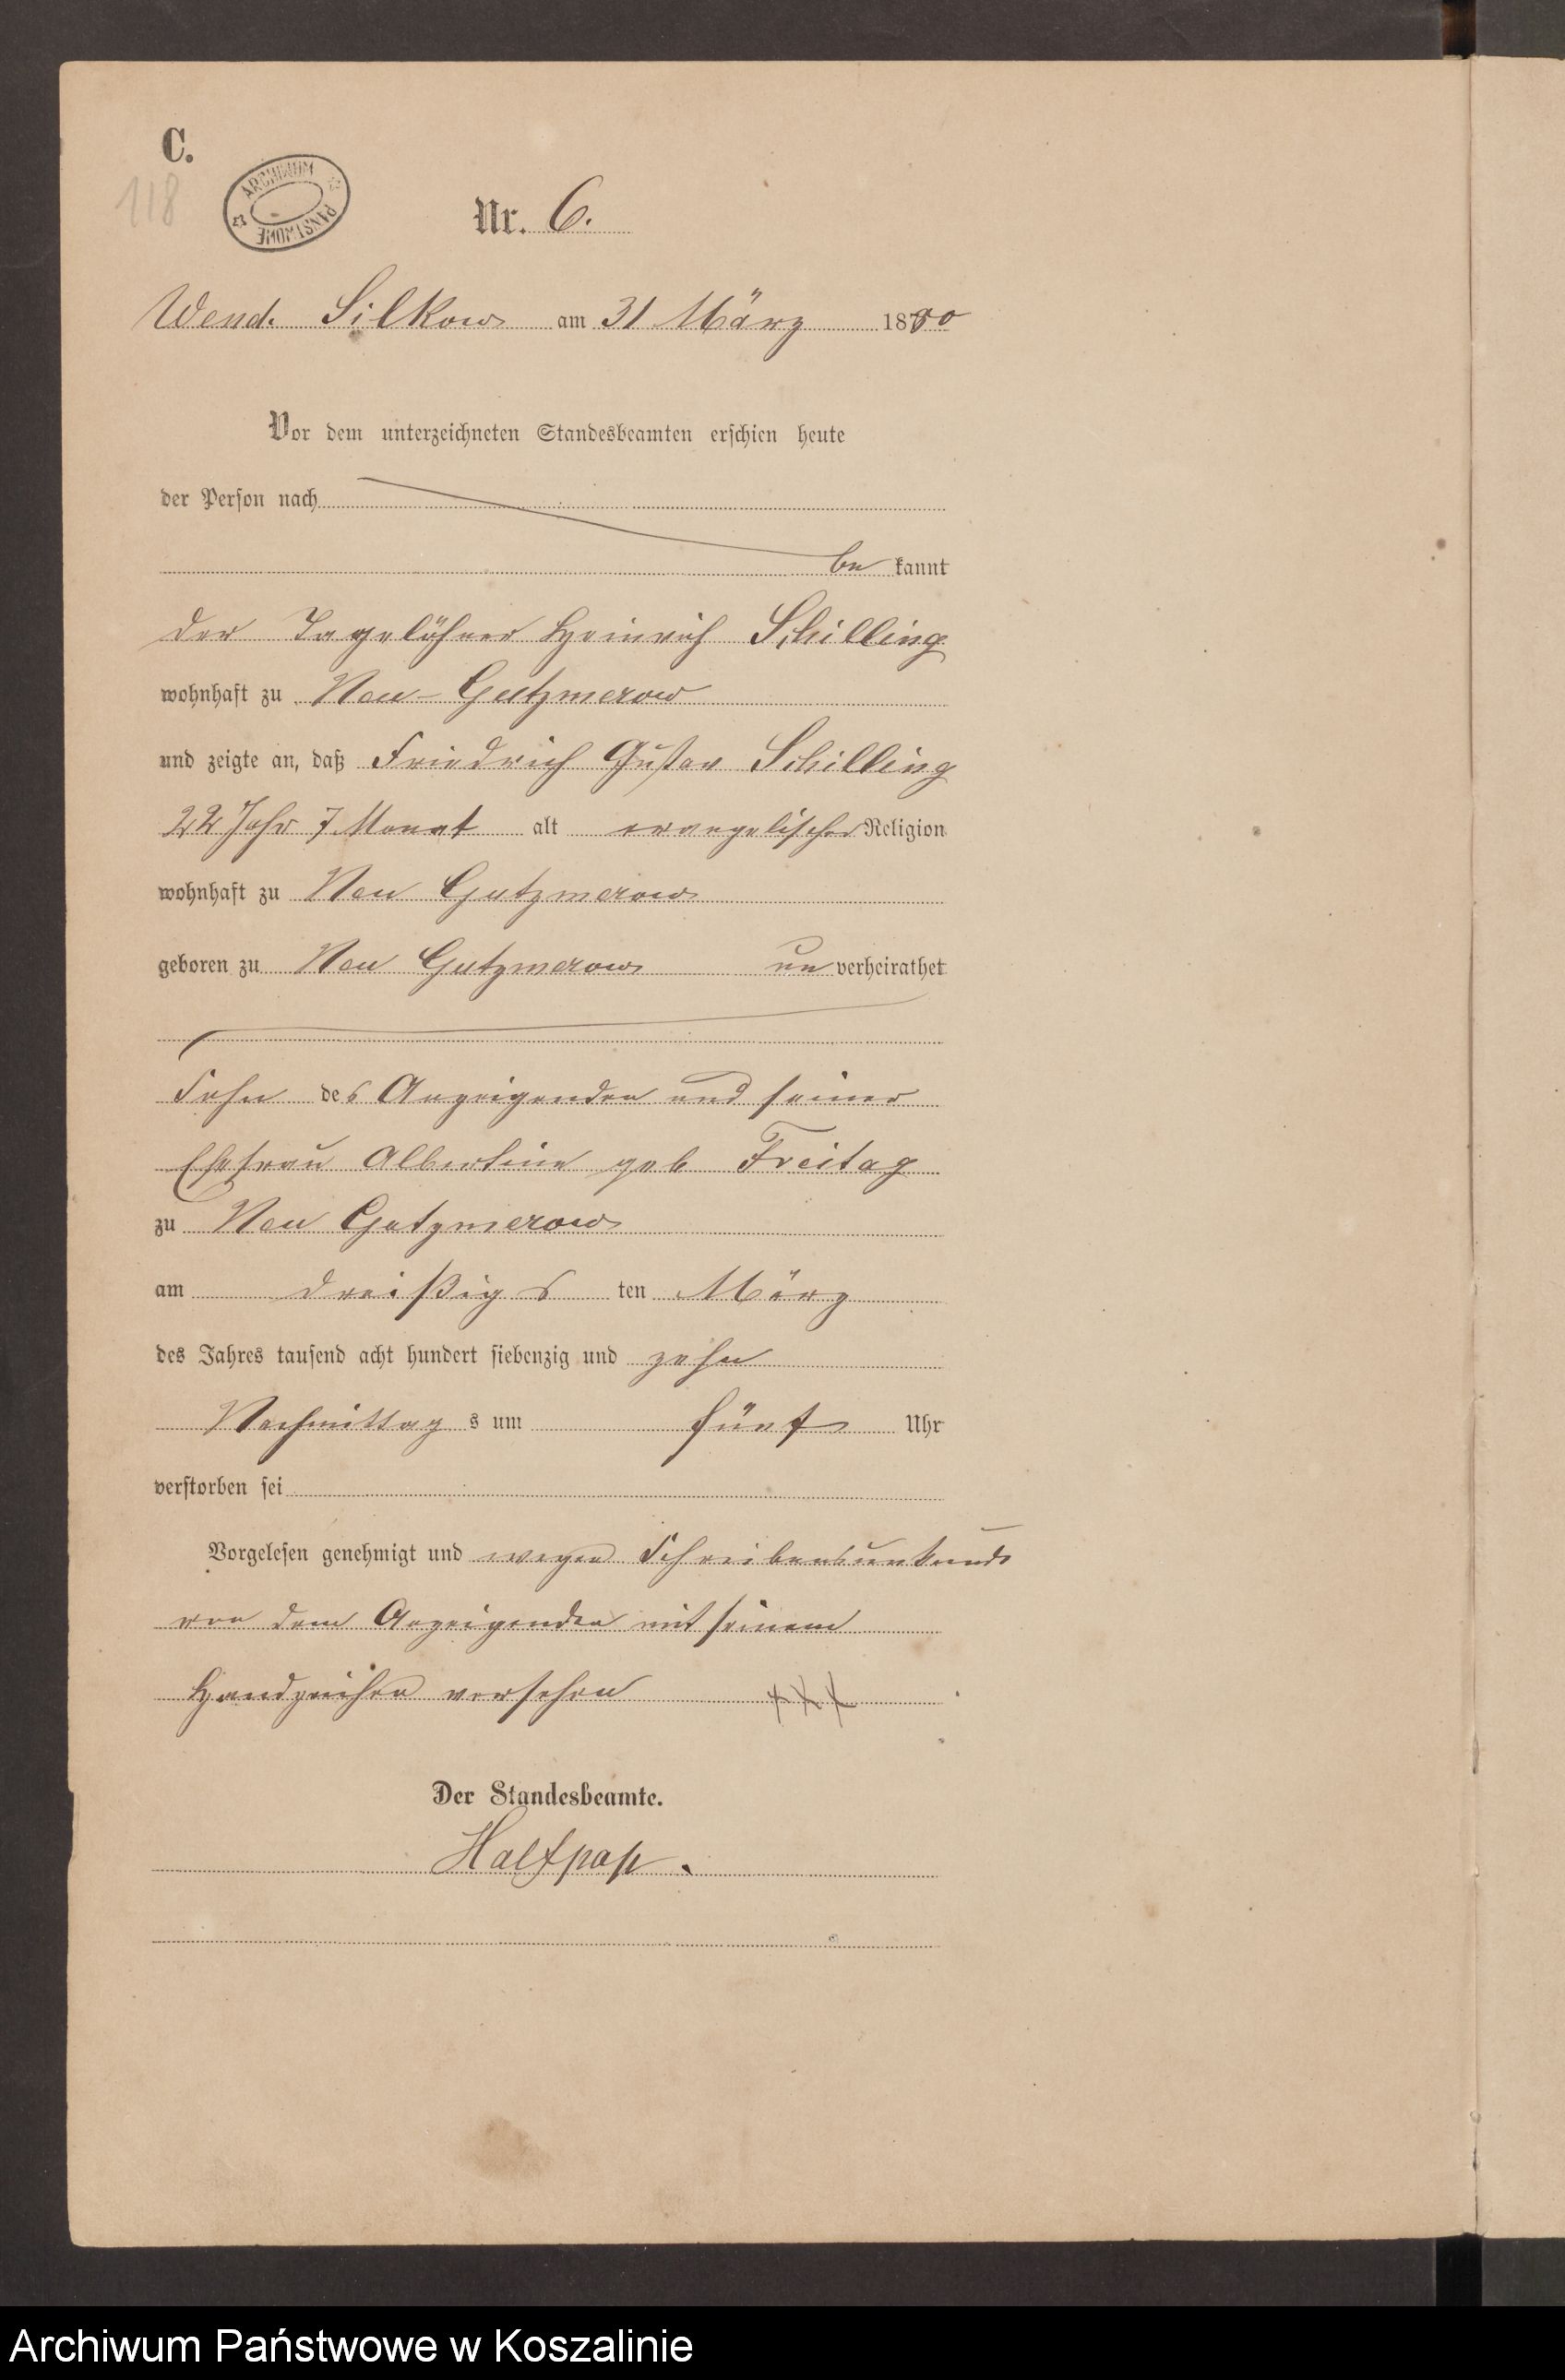 C.
118
ARCHIWUM PAŃSTWOWE
Nr. 6.
Wend. Silkow am 31 März 1880
Vor dem unterzeichneten Standesbeamten erschien heute
der Person nach
be kannt
der Tagelöhner Heinrich Schilling
wohnhaft zu Neu-Gutzmerow
und zeigte an, daß Friedrich Gustav Schilling
22 Jahr 7 Monat alt evangelischer Religion
wohnhaft zu Neu Gutzmerow
geboren zu Neu Gutzmerow un verheirathet
Sohn des Anzeigenden und seiner
Ehefrau Albertine geb Freitag
zu Neu Gutzmerow
am dreißigs ten März
des Jahres tausend acht hundert siebenzig und zehn
Nachmittag s um fünf Uhr
verstorben sei
Vorgelesen genehmigt und wegen Schreibensunkunde
von dem Anzeigenden mit seinem
Handzeichen versehen +++
Der Standesbeamte.
Halfpap.
Archiwum Państwowe w Koszalinie